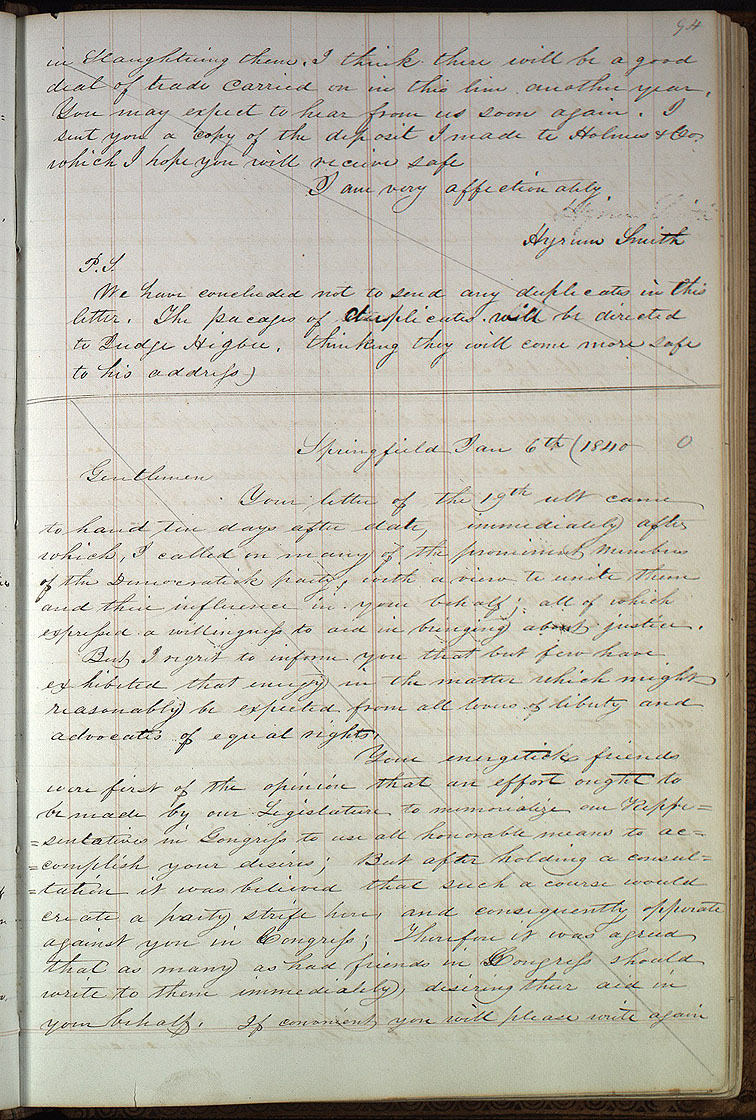 94
in Slaughtring them. I think there will be a good
deal of trade carried on in this line another year.
You may expect to hear from us soon again. I
sent you a copy of the deposit I made to Holmes & Co.
which I hope you will receive safe
I am very affectionately
Hyrum Smith
Hyrum Smith
P.S.
We have concluded not to send any duplicates in this
letter. The pacages of duplicates will be directed
to Judge Higbee. thinking they will come more safe
to his address)
Springfield Jan 6th (1840 0
Gentlemen
Your letter of the 19th ult came
to hand ten days after date, immediately after
which, I called on many of the prominent members
of the Democratick party, with a view to unite them
and their influence in your behalf; all of which
expressed a willingness to aid in bringing about justice.
But I regret to inform you that but few have
exhibited that energy in the matter which might
reasonably be expected from all lovers of liberty and
advocates of equal rights.
Your energetick friends
were first of the opinion that an effort ought to
be made by our Legislature to memorialize our Reppre=
=sentatives in Congress to use all honorable means to ac=
=complish your desires; But after holding a consul=
=tation it was believed that such a course would
create a party strife here, and consequently opporate
against you in Congress; Therefore it was agreed
that as many as had friends in Congress should
write to them immediately, desiring their aid in
your behalf. If convenient you will please write again